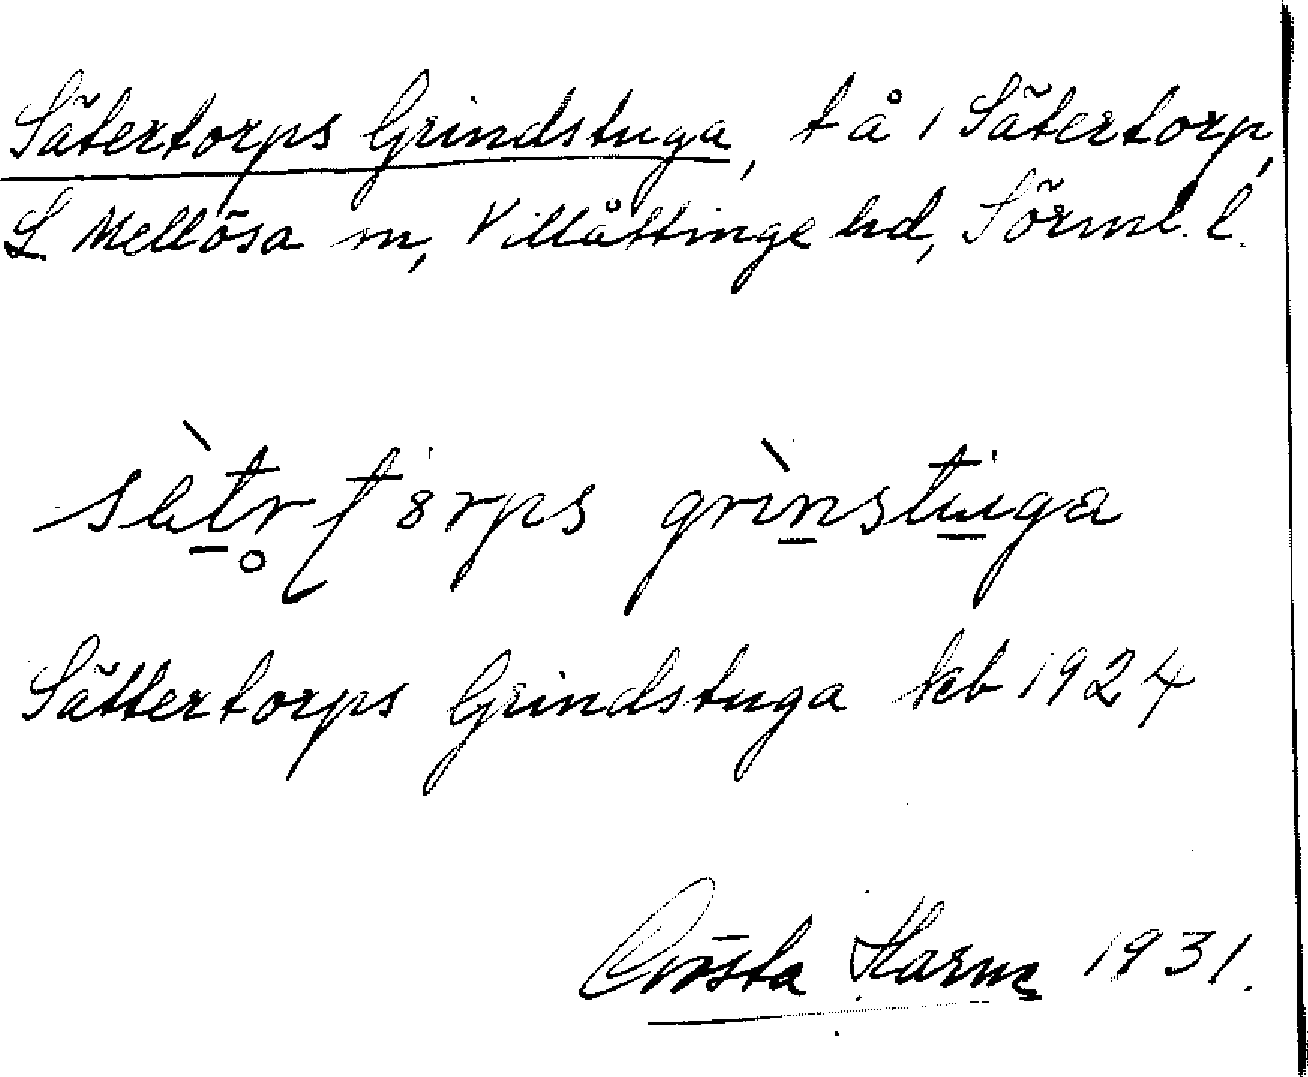 Sätertorps Grindstuga, t å i Sätertorp,
L Mellösa sn, Villåttinge hd, Sörml. l.
grìnstuga
Sättertorps Grindstuga kb 1924
Gösta 1931.